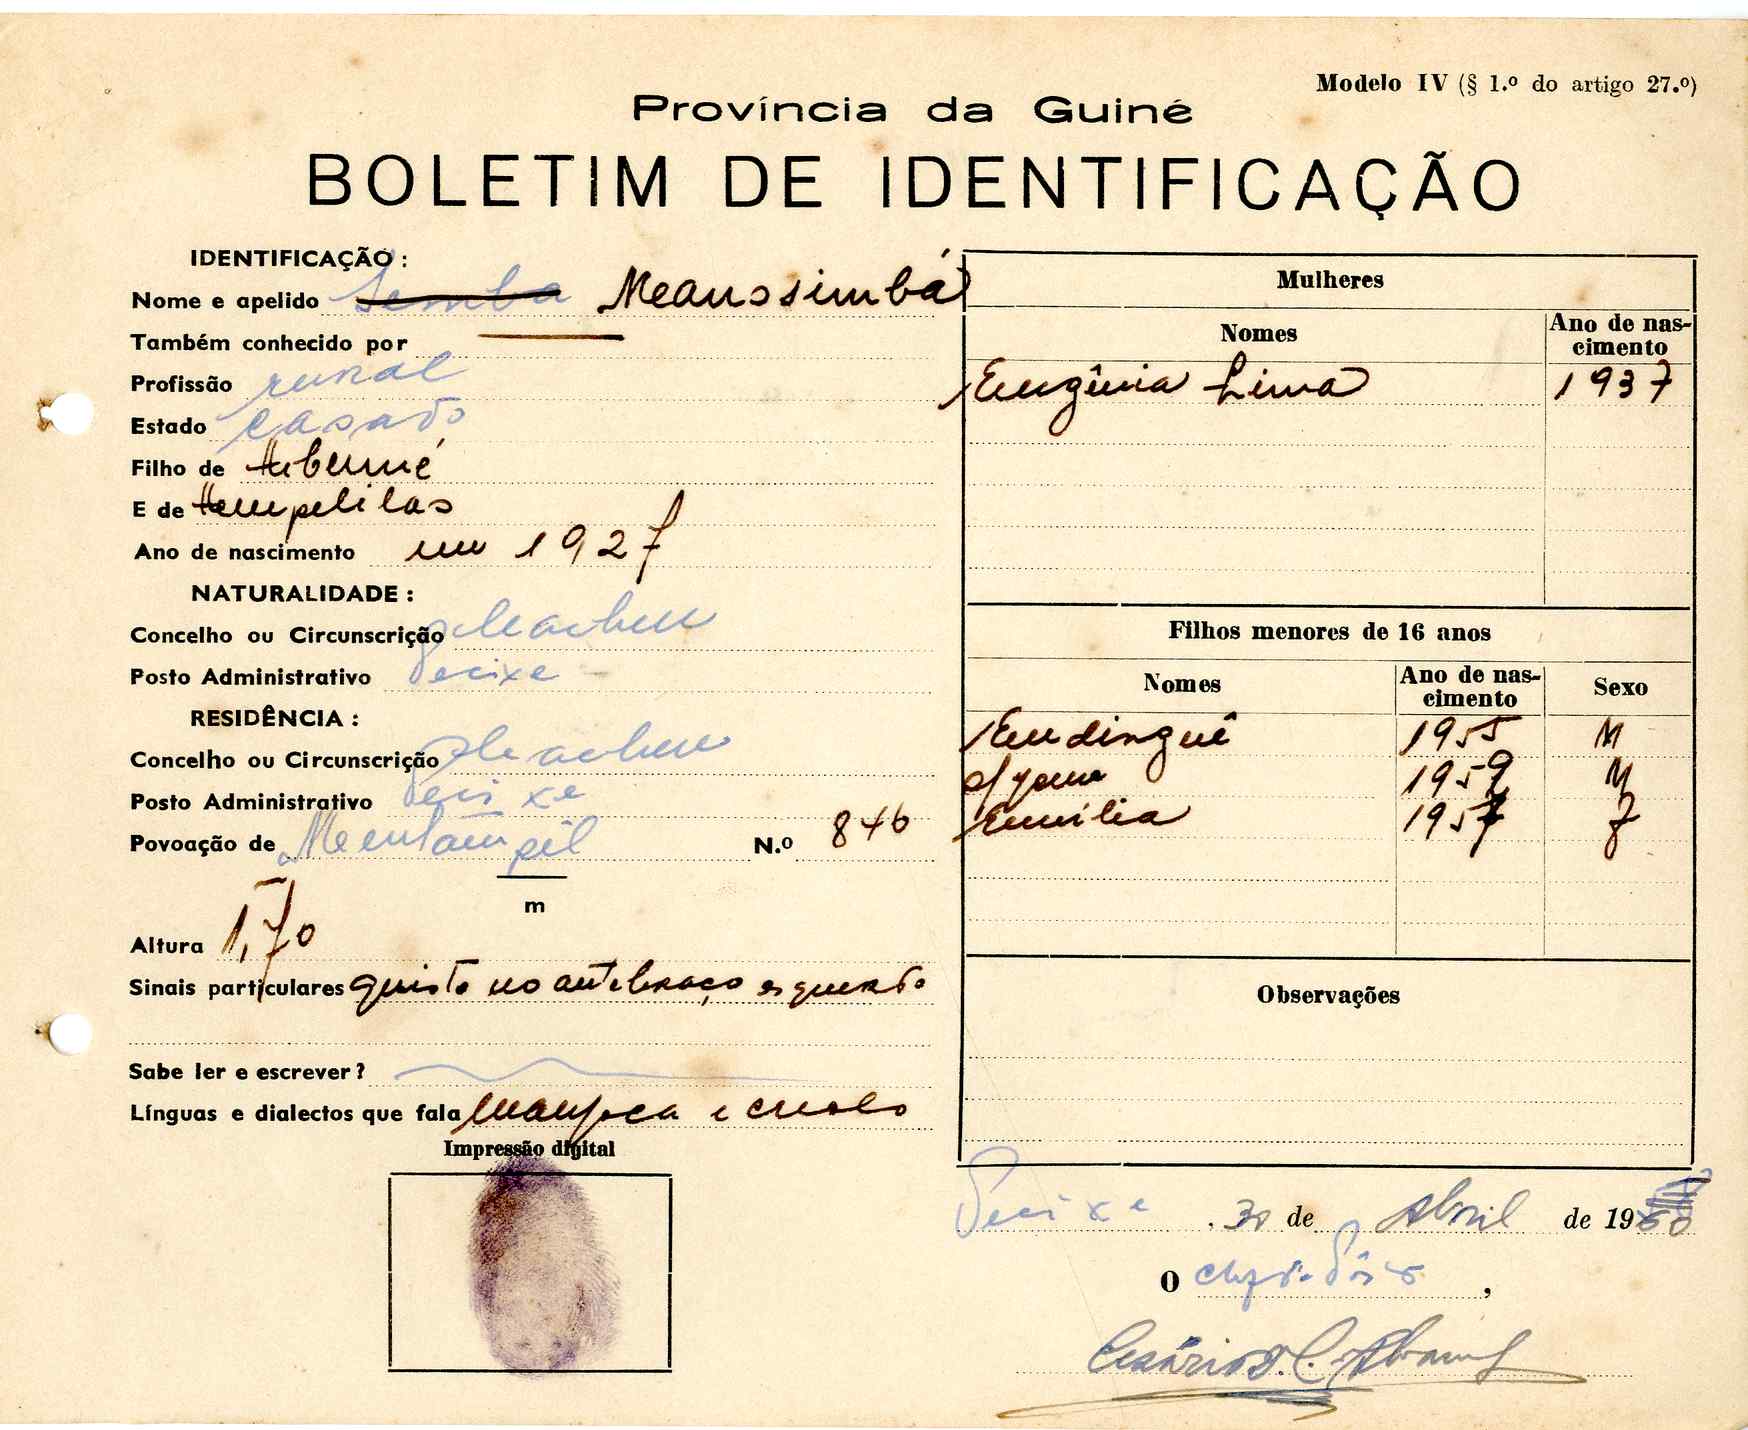 Modelo IV (§ 1.º do artigo 27.º)
Província da Guiné
BOLETIM DE IDENTIFICAÇÃO
IDENTIFICAÇÃO:
Nome e apelido Semba Meanssimbá
Também conhecido por
Profissão rural
Estado casado
Filho de
E de
Ano de nascimento em 1927
NATURALIDADE:
Concelho ou Circunscrição
Posto Administrativo Pecixe
RESIDÊNCIA:
Concelho ou Circunscrição
Posto Administrativo Pecixe
Povoação de N.º 846
m
Altura 1,70
Sinais particulares quisto no antebraço esquerdo
Sabe ler e escrever?
Línguas e dialectos que fala manjaca e crioulo
Impressão digital
Mulheres
Nomes Ano de nascimento
Eugênia Lima 1937
Filhos menores de 16 anos
Nomes Ano de nascimento Sexo
Endinguê 1955 M
1959 M
Emília 1957 F
Observações
Pecixe, 30 de Abril de 1960
O chefe do Pôsto,